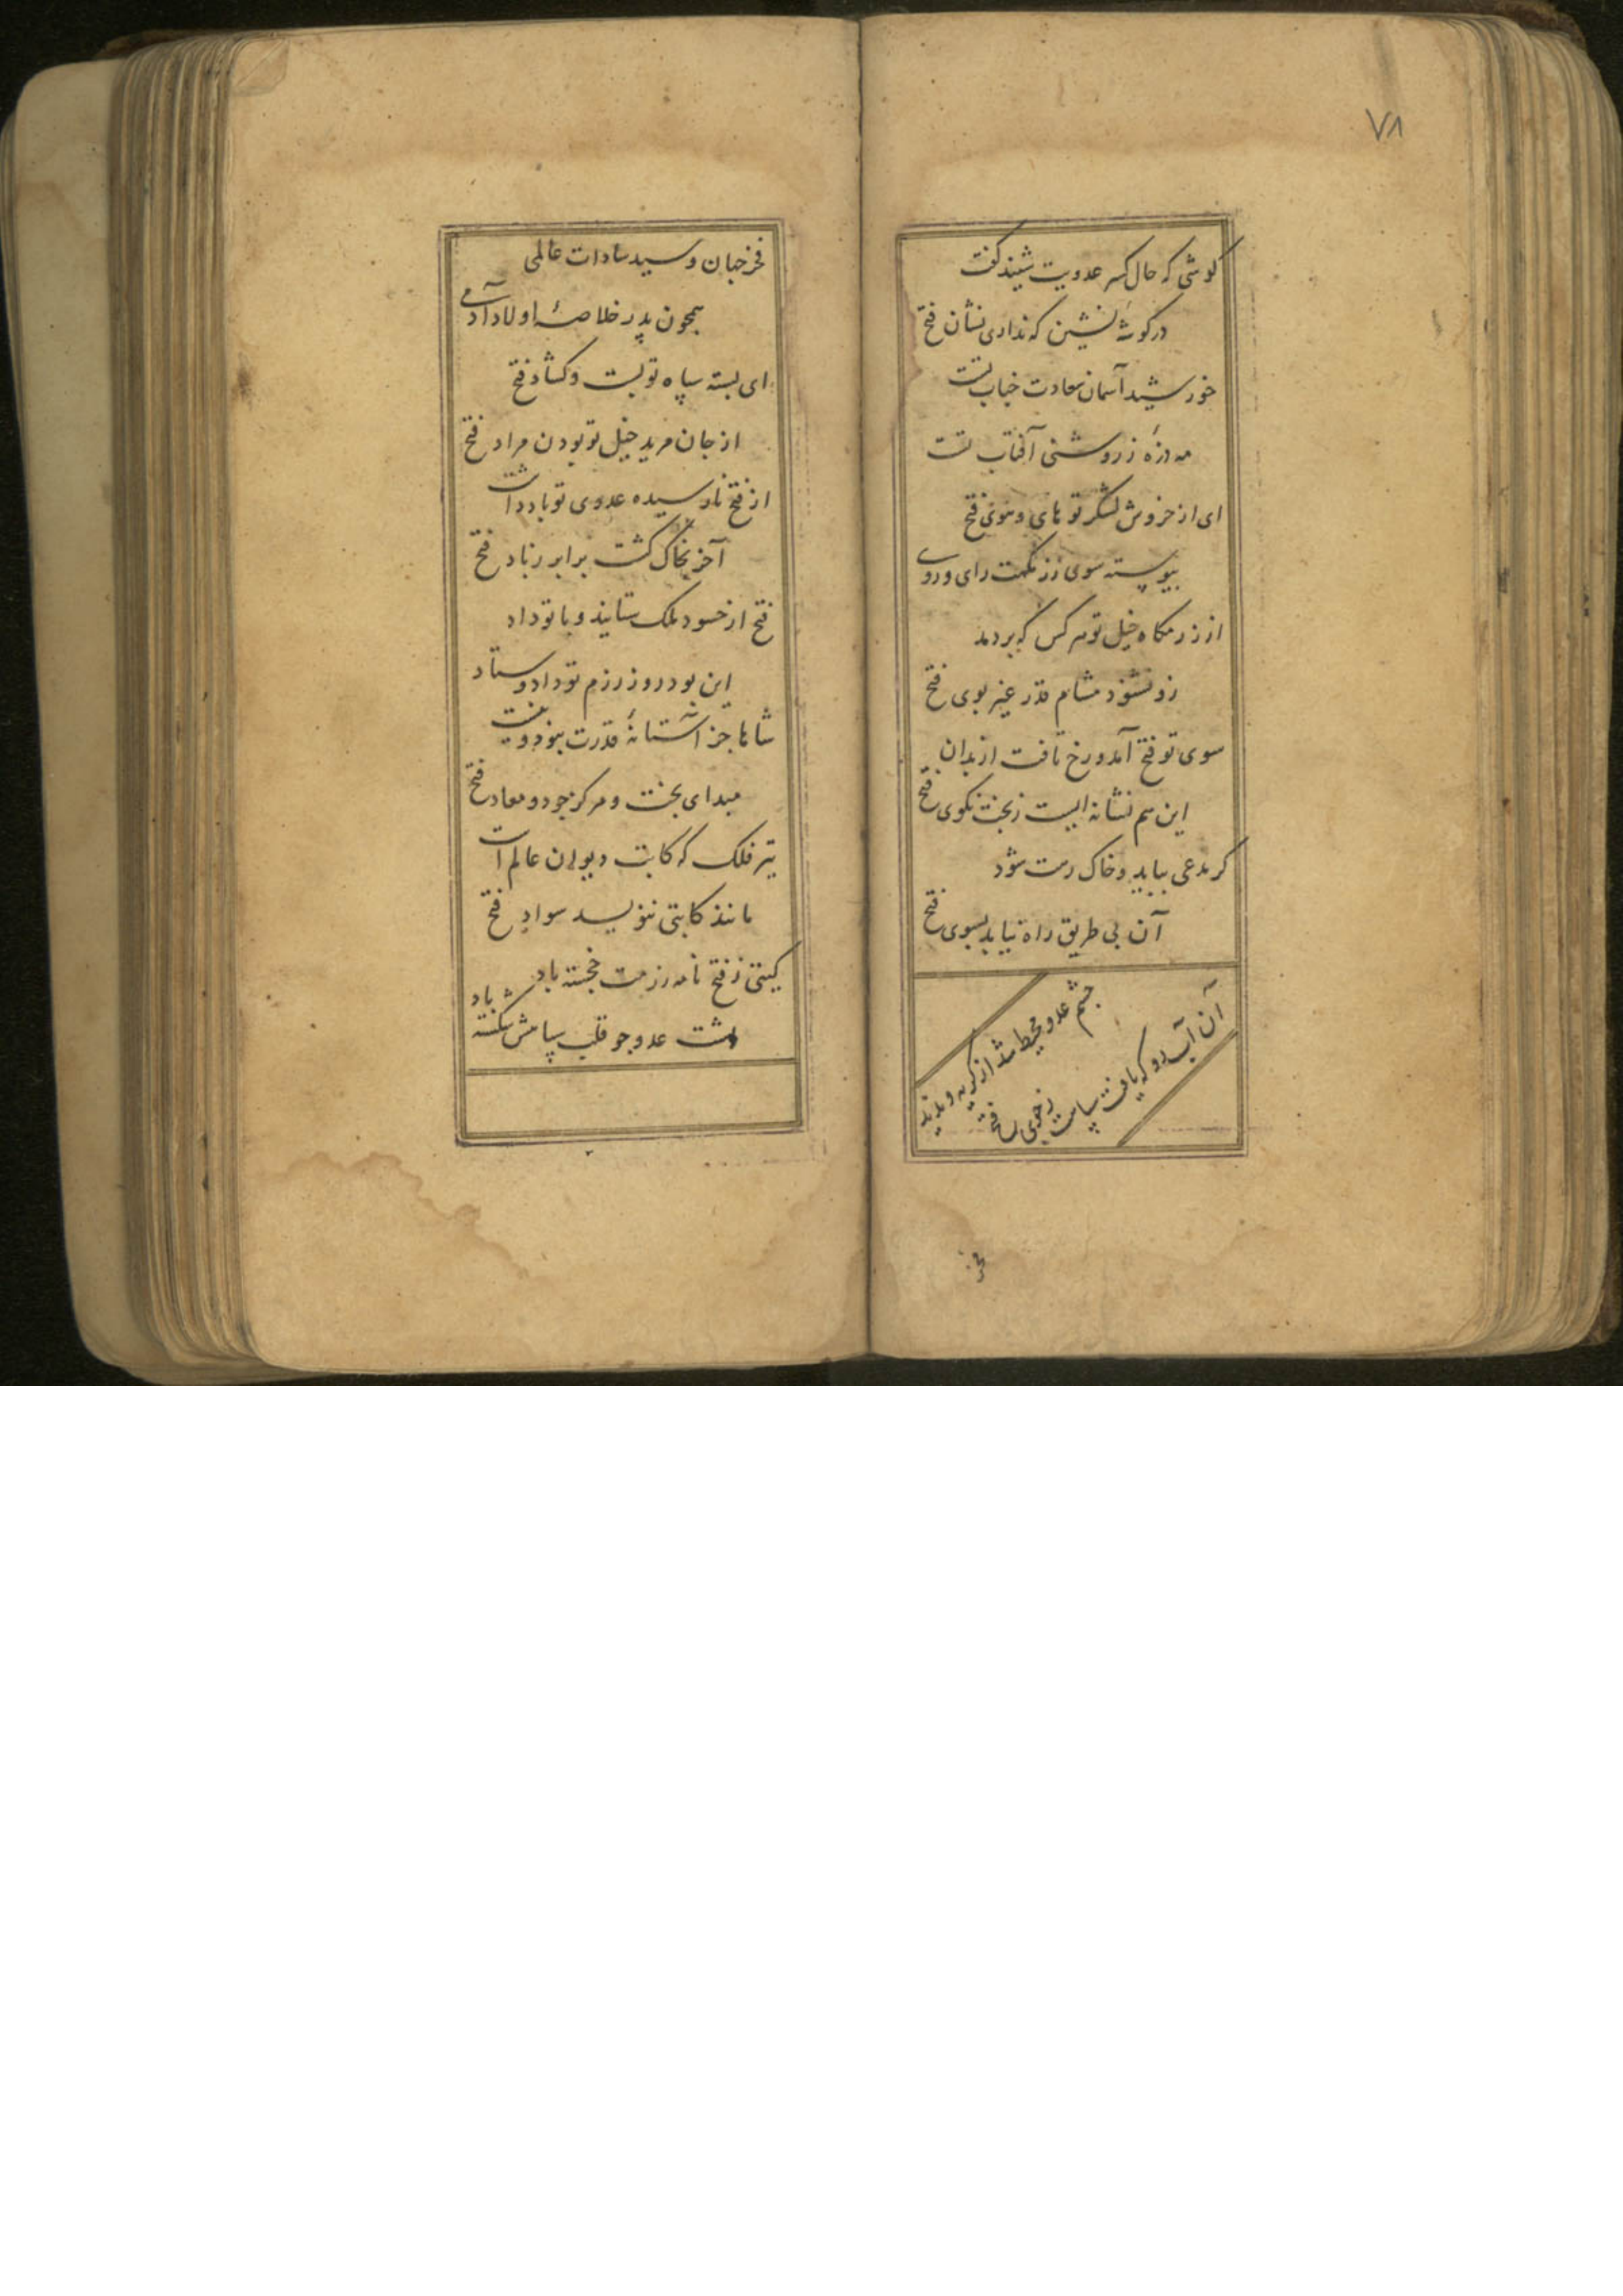 ٧٨
کوشی که حال کسر عدویت شنید گفت
در کوشهٔ نشین که نداری نشان فتح
خورشید آسمان سعادت جناب تست
مه ذرهٔ ز روشنی آفتاب تست
ای از خروش لشکر تو های و هوی فتح
پیوسته سوی رزمگهت رای و روی
از رزمگاه خیل تو هر کس که بر دمد
زو نشنود مشام قدر غیر بوی فتح
سوی تو فتح آمد و رخ تافت از بدان
این هم نشانه ایست ز بخت نکوی فتح
کر مدعی بیاید و خاک رهت شود
آن بی طریق راه نیابد بسوی فتح
چشم عدو محیط شد از کریه و ندید
آن آب رو که یافت سپاهت ز جوی فتح
فخر
فخر جهان و سید سادات عالمی
همچون پدر خلاصهٔ اولاد آدمی
ای بسته سپاه تو بست و کشاد فتح
از جان مرید خیل تو بودن مراد فتح
از فتح نارسیده عدوی تو باد داشت
آخر بخاک کشت برابر ز باد فتح
فتح از حسود ملک ستانید و با تو داد
این بود روز رزم تو داد و ستاد
شاها جز آستانهٔ قدرت نبود و نیست
مبدای بخت و مرکز جود و معاد فتح
تیر فلک که کاتب دیوان عالم است
مانند کاتبی ننویسد سواد فتح
کیتی ز فتح نامه رزمت خجسته باد
پشت عدو چو قلب سپاهش شکسته باد